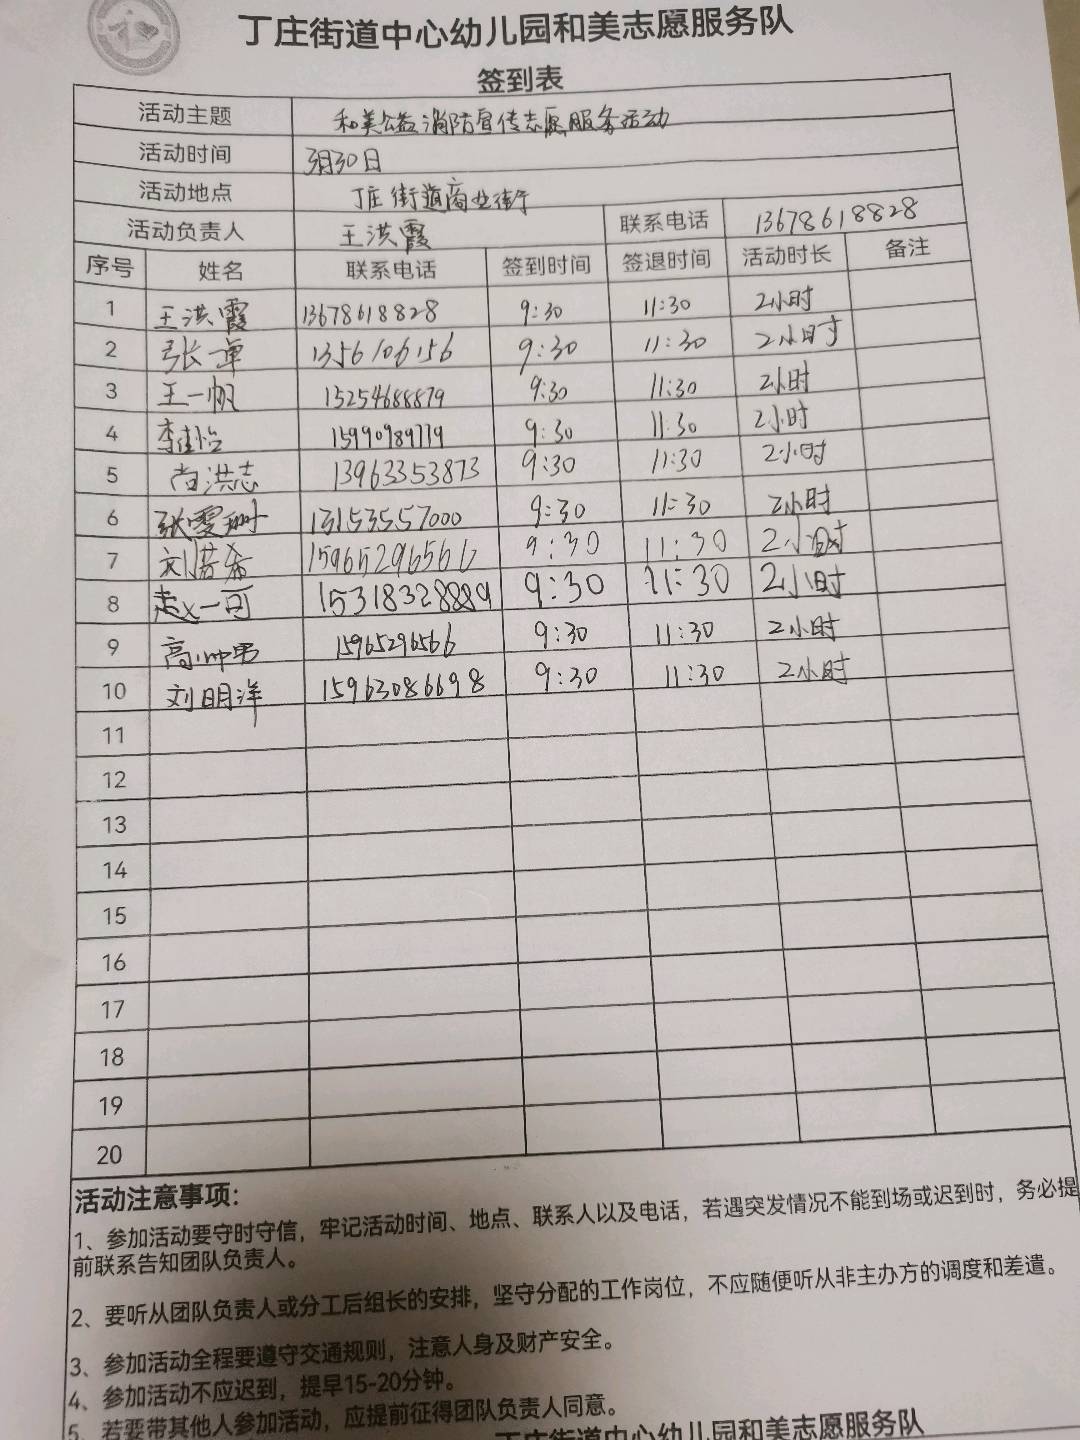 丁庄街道中心幼儿园和美志愿服务队
签到表
活动主题 和美公益消防宣传志愿服务活动
活动时间 3月30日
活动地点 丁庄街道商业街
活动负责人 王洪霞 联系电话 13678618828
序号 姓名 联系电话 签到时间 签退时间 活动时长 备注
1 王洪霞 13678618828 9:30 11:30 2小时
2 张一单 1356106156 9:30 11:30 2小时
3 王一帆 15254688879 9:30 11:30 2小时
4 李佳怡 15990989779 9:30 11:30 2小时
5 尚洪志 13963353873 9:30 11:30 2小时
6 张雯珊 13153557000 9:30 11:30 2小时
7 刘若希 15965296566 9:30 11:30 2小时
8 赵一可 15318328889 9:30 11:30 2小时
9 高帅男 15965296566 9:30 11:30 2小时
10 刘明洋 15963086698 9:30 11:30 2小时
11
12
13
14
15
16
17
18
19
20
活动注意事项：
1、参加活动要守时守信，牢记活动时间、地点、联系人以及电话，若遇突发情况不能到场或迟到时，务必提
前联系告知团队负责人。
2、要听从团队负责人或分工后组长的安排，坚守分配的工作岗位，不应随便听从非主办方的调度和差遣。
3、参加活动全程要遵守交通规则，注意人身及财产安全。
4、参加活动不应迟到，提早15-20分钟。
5、若要带其他人参加活动，应提前征得团队负责人同意。
丁庄街道中心幼儿园和美志愿服务队